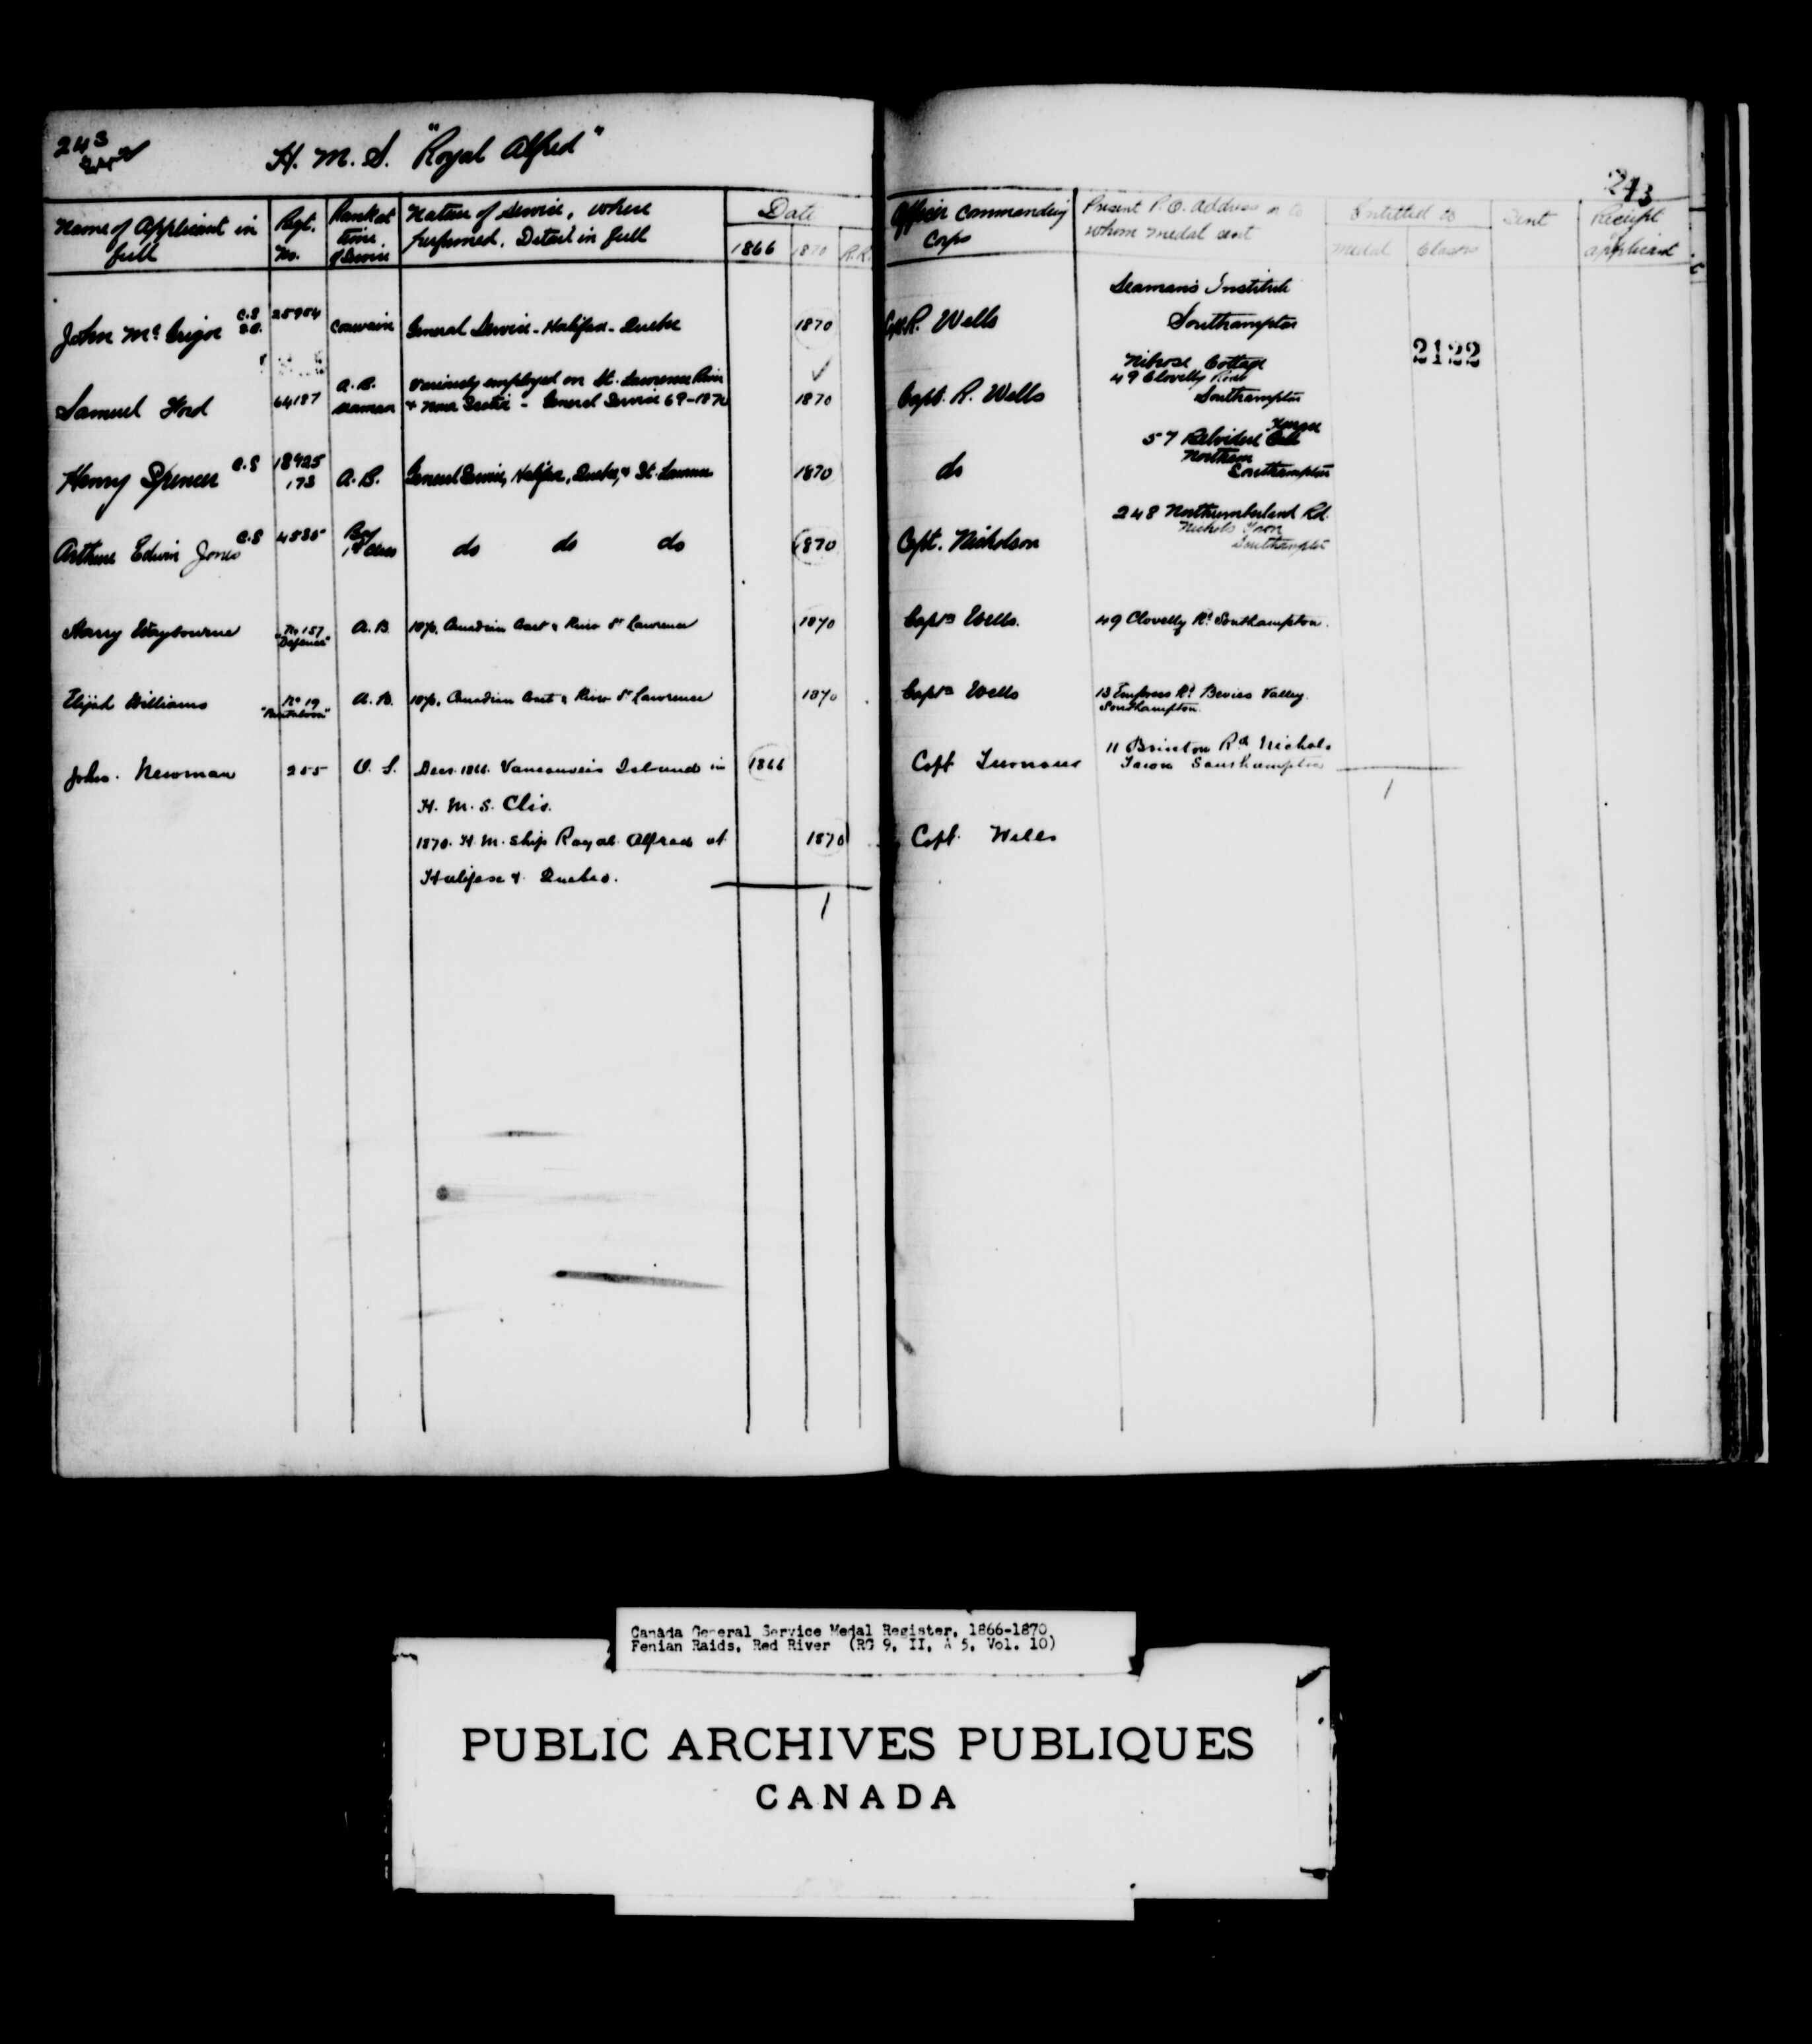 243
H. M. S. "Royal Alfred"
243
Name of Applicant in full
Regt. No.
Rank at time of Service
Nature of Service, where performed. Detail in full
Date
1866 1870 R.R.
Officer Commanding Corps
Present P.O. address or to whom medal sent
Entitled to
Medal Clasps
Sent
Receipt applicant
John McGrigor C.S 25904 General Service - Halifax - Quebec 1870 Capt. R. Wells Seaman's Institute
Southampton
2122
Samuel Ford 64187 A.B. Seaman Variously employed on St. Lawrence River
& Near Quebec - General Service 69-1870 1870 Capt. R. Wells Cottage
49 Clovelly Road
Southampton
Henry Spencer C.S 18925
173 A.B. General Service, Halifax, Quebec, & St. Lawrence 1870 do 57 Belvidere Terrace
Northam
Southampton
Arthur Edwin Jones C.S 4535 Boy
1st Class do do do 1870 Capt. Nicholson 248 Northumberland Rd.
Nichols Town
Southampton
Harry Waybourne No 157
"Defence" A.B. 1870, Canadian Coast & River St Lawrence 1870 Captn Wells. 49 Clovelly Rd Southampton.
Elijah Williams No 19 A.B. 1870, Canadian Coast & River St Lawrence 1870 Captn Wells 13 Empress Rd Bevois Valley.
Southampton.
John. Newman 255 O.S. 1866. Vancouver's Island in 1866 Capt Turnour 11 Brinton Rd Nichols
Town Southampton
H. M. S. Clio.
1870. H. M. Ship Royal Alfred at 1870 Capt. Wells
Halifax & Quebec.
1
1
Canada General Service Medal Register, 1866-1870
Fenian Raids, Red River (RG 9, II, A 5, Vol. 10)
PUBLIC ARCHIVES PUBLIQUES
CANADA